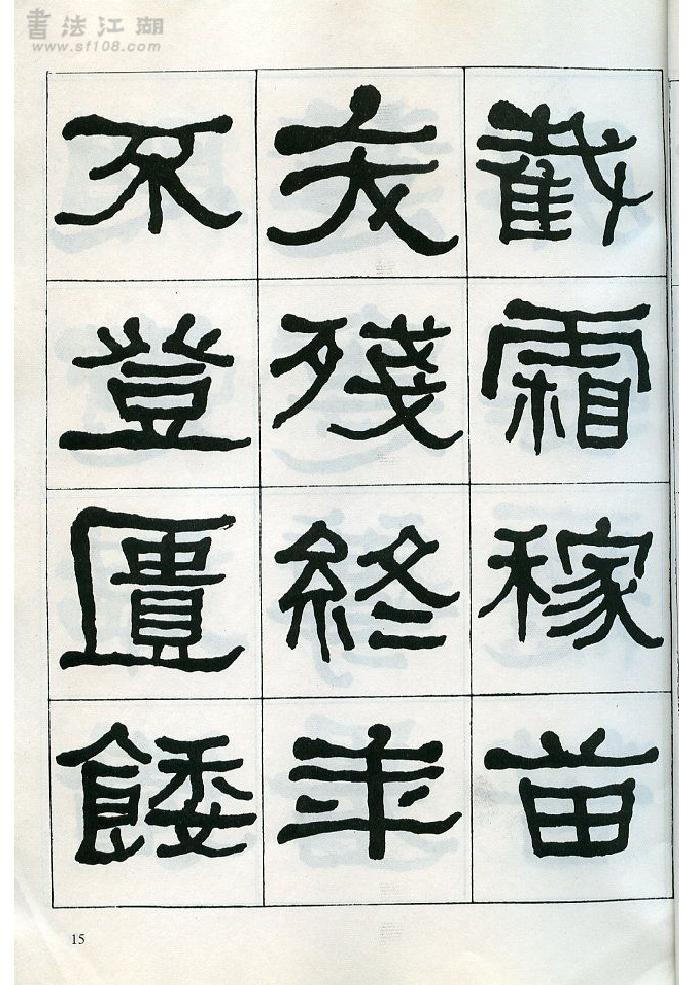 書法江湖
www.sf108.com
截霜稼苗
夭殘終年
不登匱餧
15